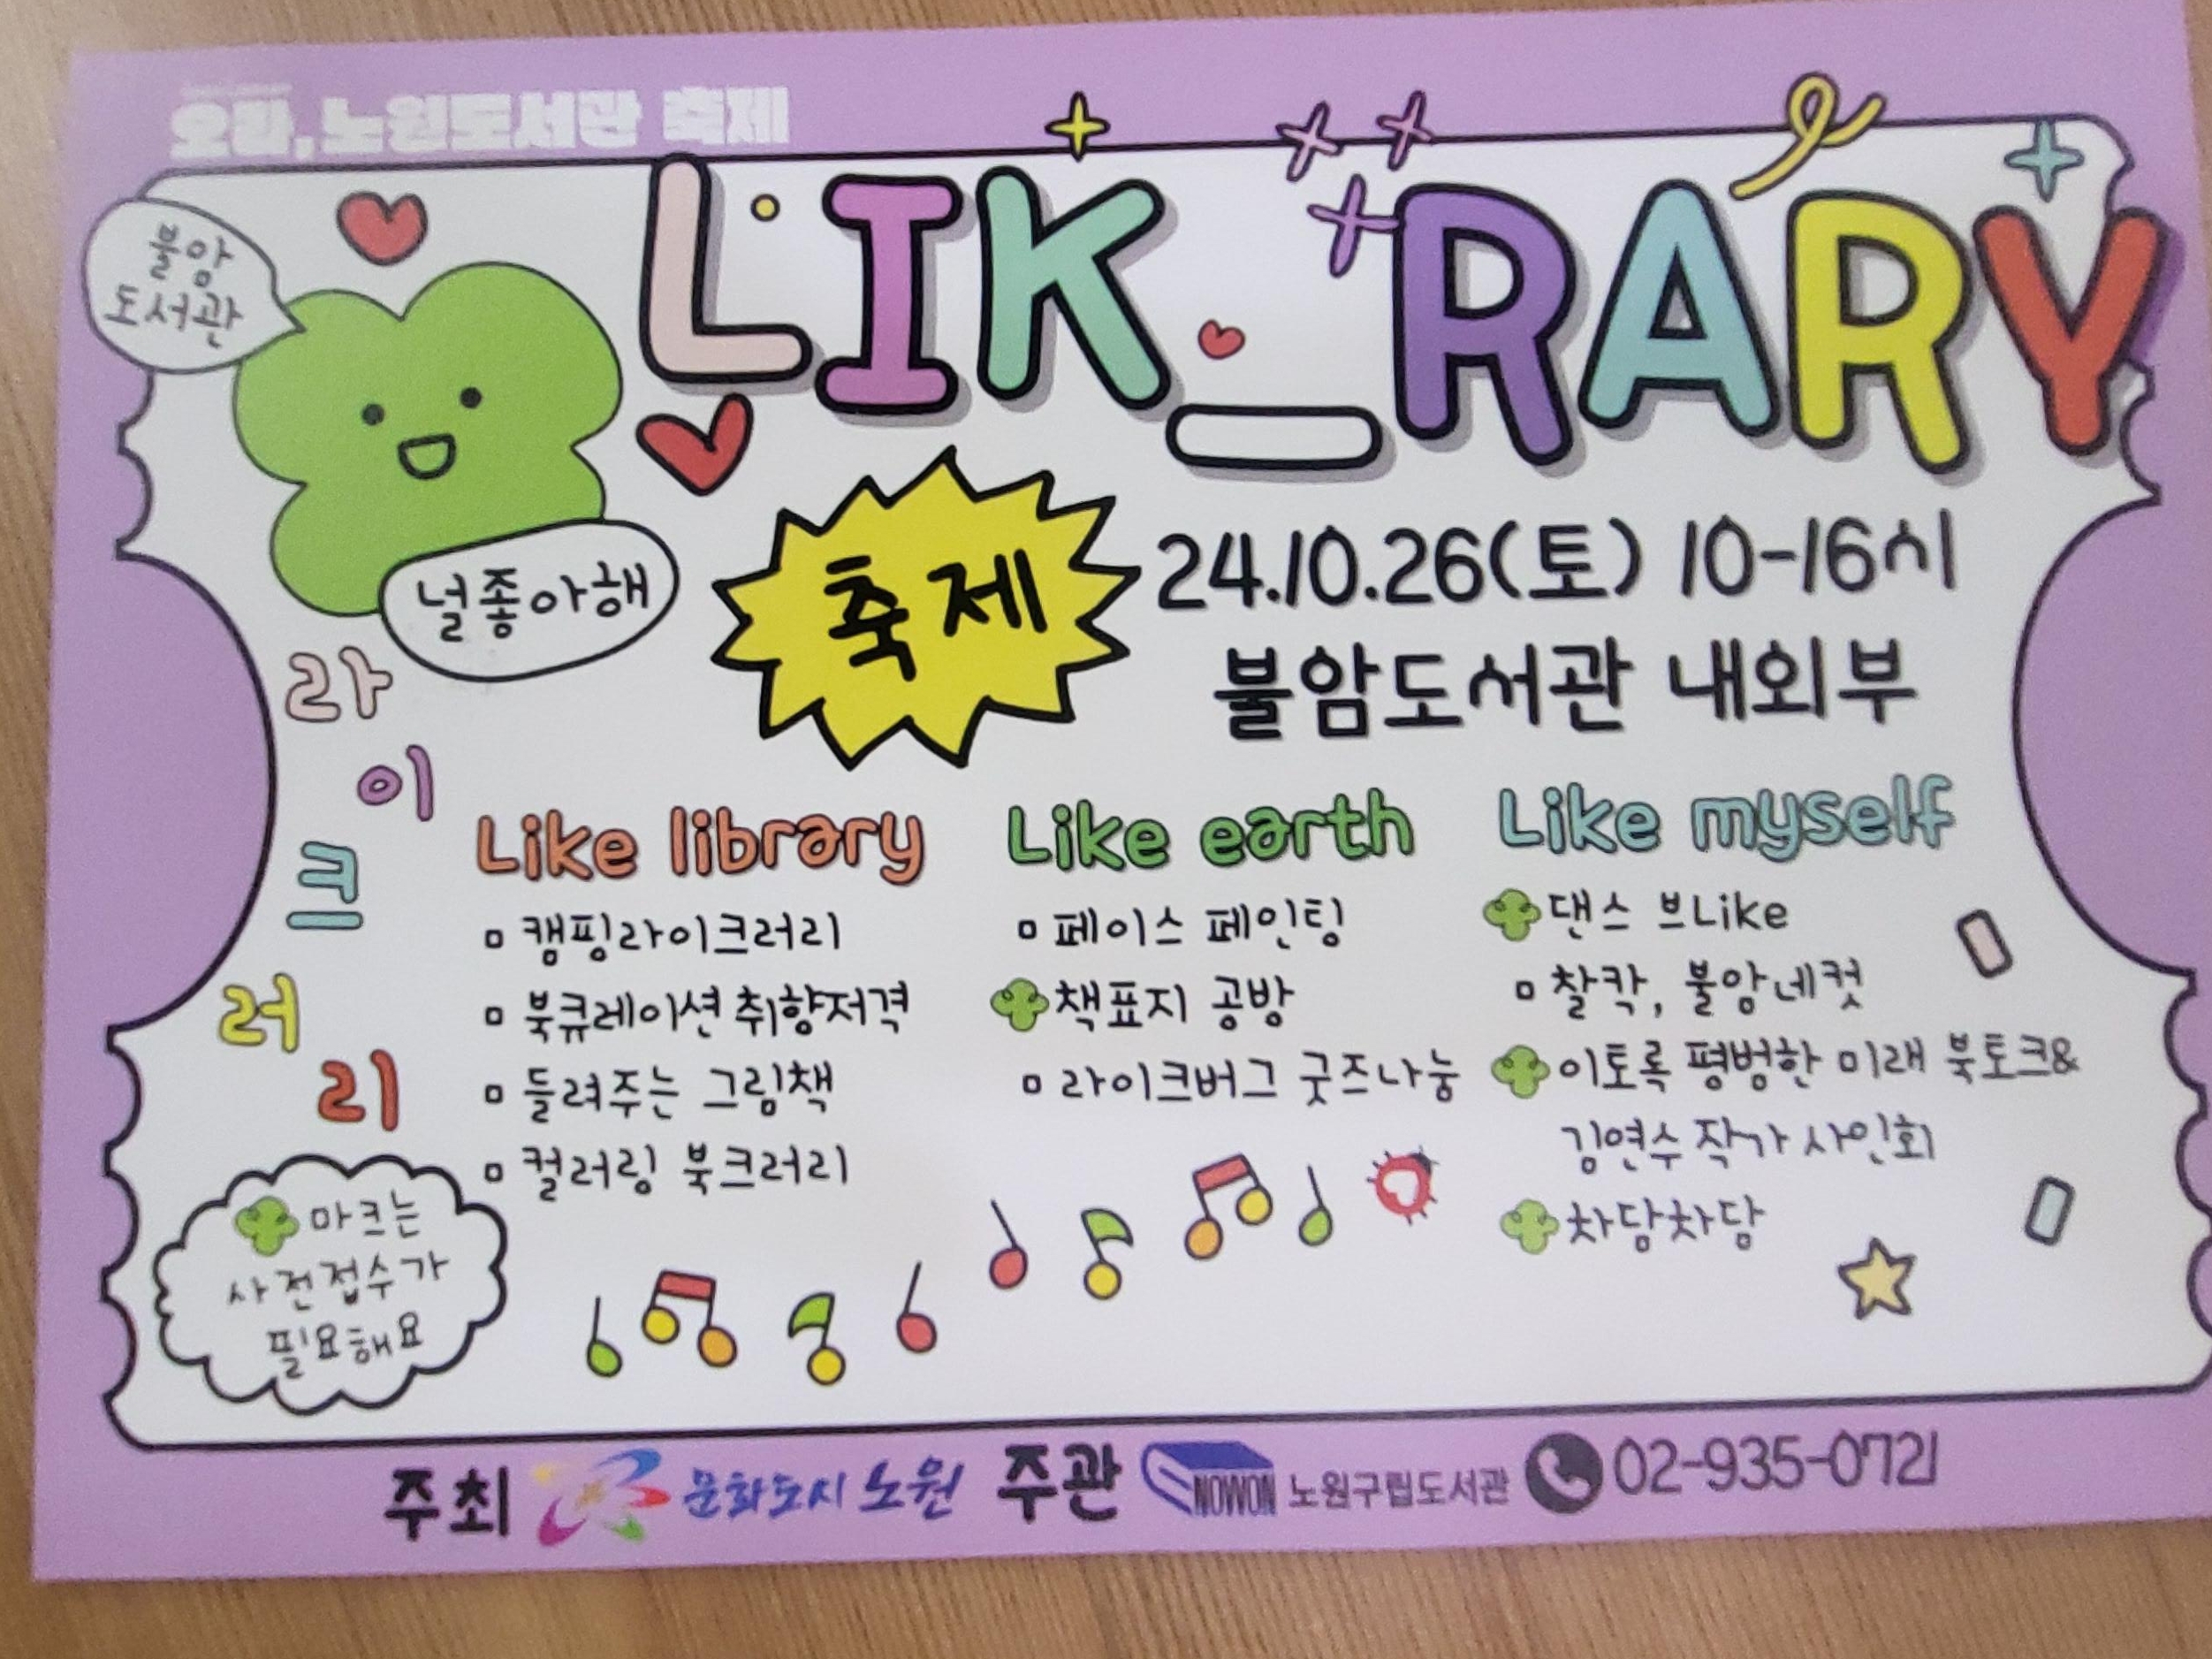 오라, 노원도서관 축제
LIK_RARY
불암
도서관
널좋아해
축제
24.10.26(토) 10-16시
불암도서관 내외부
라
이
크
러
리
Like library
캠핑라이크러리
북큐레이션 취향저격
들려주는 그림책
컬러링 북크러리
Like earth
페이스 페인팅
책표지 공방
라이크버그 굿즈나눔
Like myself
댄스 브Like
찰칵, 불암네컷
이토록 평범한 미래 북토크&
김연수 작가 사인회
차담차담
마크는
사전접수가
필요해요
주최 문화도시 노원 주관 NOWON 노원구립도서관 02-935-0721